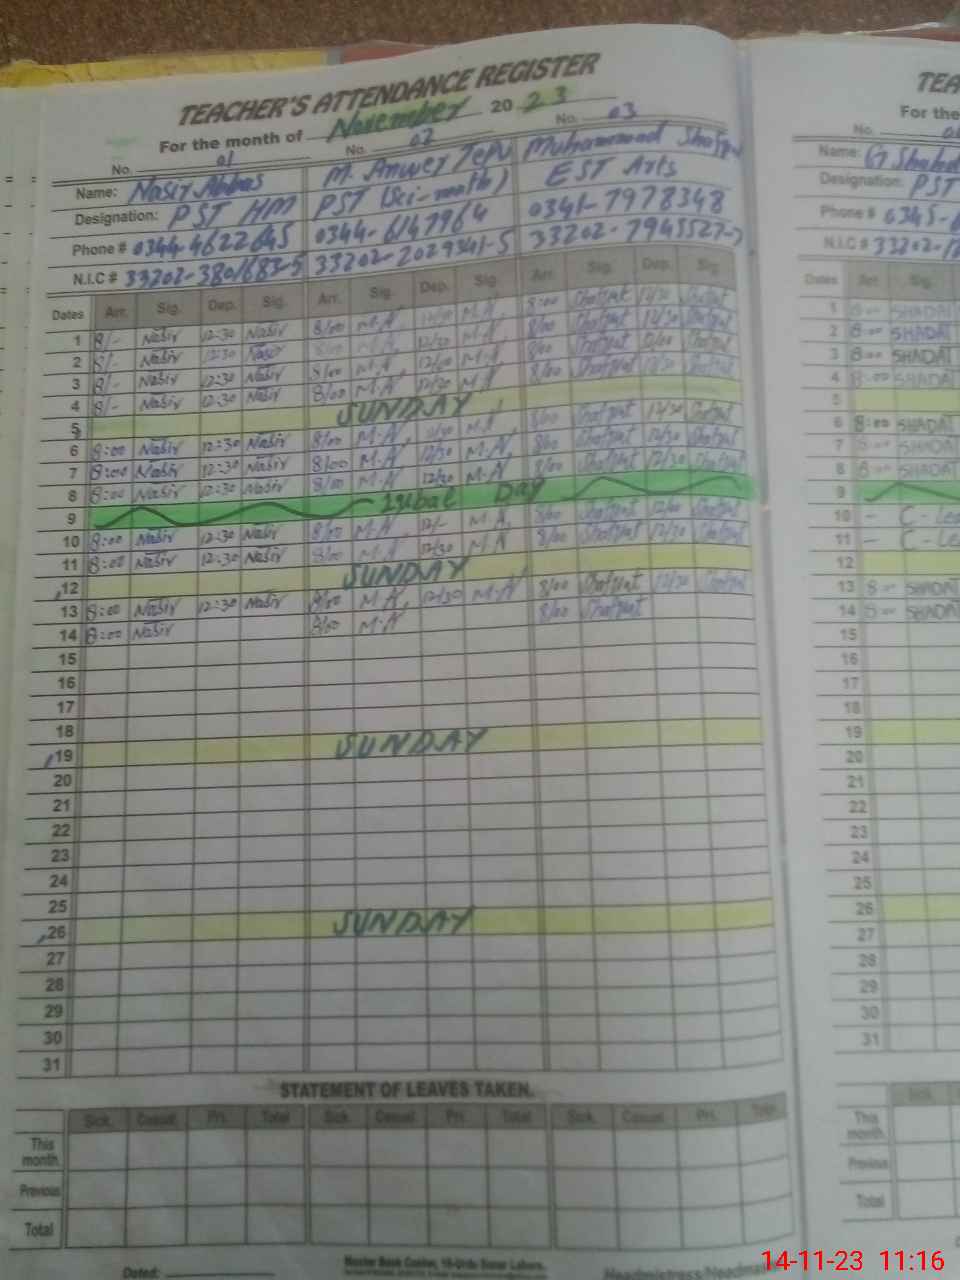 TEACHER'S ATTENDANCE REGISTER
For the month of November 20 23
No. 01 No. 02 No. 03
Name: Nasir Abbas M. Anwer Muhammad
Designation: PST HM PST (Sci-math) EST Arts
Phone # 0344-4622645 0344-6147964 0341-7978348
N.I.C # 33202-3801683-5 33202-2029341-5 33202-7945527-7
Dates Arr. Sig. Dep. Sig. Arr. Sig. Dep. Sig. Arr. Sig. Dep. Sig.
1 8/- Nasir 12:30 Nasir 8/00 M.A 12/30 M.A 8:00 12/30
2 8/- Nasir 12:30 Nasir 8/00 M.A 12/30 M.A 8/00 12/30
3 8/- Nasir 12:30 Nasir 8/00 M.A 12/00 M.A 8/00 12/00
4 8/- Nasir 12:30 Nasir 8/00 M.A 12/30 M.A 8/00 12/30
5 SUNDAY
6 8:00 Nasir 12:30 Nasir 8/00 M.A 12/30 M.A 8/00 12/30
7 8:00 Nasir 12:30 Nasir 8/00 M.A 12/30 M.A 8/00 12/30
8 8:00 Nasir 12:30 Nasir 8/00 M.A 12/30 M.A 8/00 12/30
9 Iqbal Day
10 8:00 Nasir 12:30 Nasir 8/00 M.A 12/- M.A 8/00 12/00
11 8:00 Nasir 12:30 Nasir 8/00 M.A 12/30 M.A 8/00 12/30
12 SUNDAY
13 8:00 Nasir 12:30 Nasir 8/00 M.A 12/30 M.A 8/00 12/30
14 8:00 Nasir 8/00 M.A 8/00
15
16
17
18
19 SUNDAY
20
21
22
23
24
25
26 SUNDAY
27
28
29
30
31
STATEMENT OF LEAVES TAKEN.
Sick. Casual. Pri. Total Sick. Casual. Pri. Total Sick. Casual. Pri. Total
This month.
Previous
Total
Dated:
Master Book Center, 16-Urdu Bazar Lahore.
TEA
For the
No.
Name: G Shahd
Designation: PST
Phone # 0345-
N.I.C # 33202-
Dates Arr. Sig.
1 8:00 SHADAT
2 8:00 SHADAT
3 8:00 SHADAT
4 8:00 SHADAT
5
6 8:00 SHADAT
7 8:00 SHADAT
8 8:00 SHADAT
9
10 - C-Lea
11 - C-Lea
12
13 8:00 SHADAT
14 8:00 SHADAT
15
16
17
18
19
20
21
22
23
24
25
26
27
28
29
30
31
Sick.
This month.
Previous
Total
14-11-23 11:16